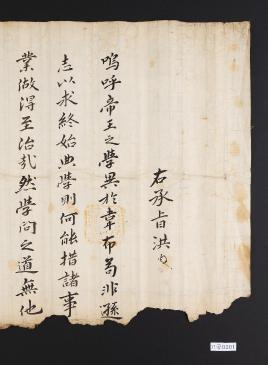 右承旨洪
嗚呼帝王之學異於韋布苟非遜
志以求終始典學則何能措諸事
業做得至治哉然學問之道無他